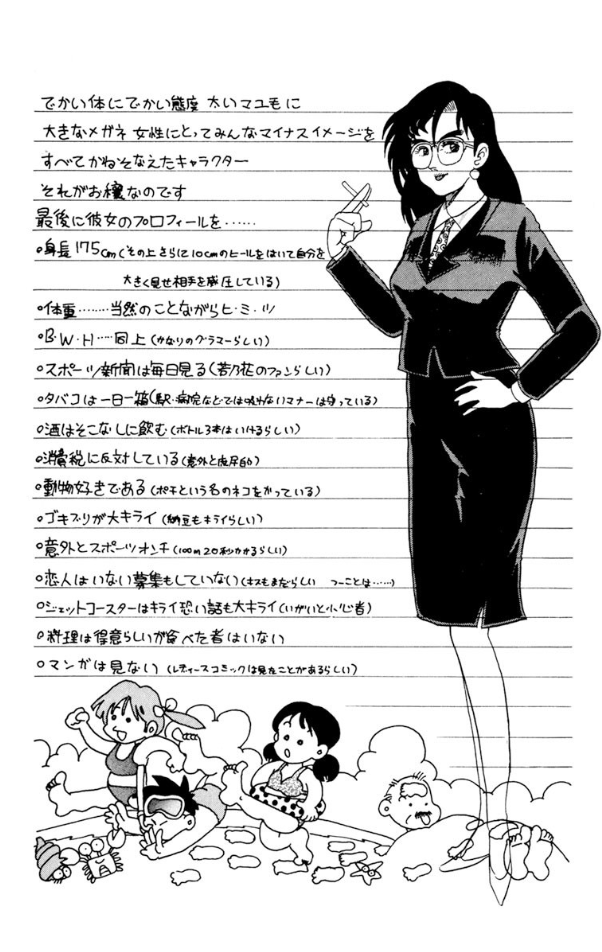 でかい体にでかい態度 太いマユ毛に
大きなメガネ 女性にとってみんなマイナスイメージを
すべてかねそなえたキャラクター
それがお穣なのです
最後に彼女のプロフィールを……
○身長175cm(その上さらに10cmのヒールをはいて自分を
大きく見せ相手を威圧している)
○体重………当然のことながらヒ・ミ・ツ
○B・W・H……同上(かなりのグラマーらしい)
○スポーツ新聞は毎日見る(若乃花のファンらしい)
○タバコは一日一箱(駅・病院などでは吸わないマナーは守っている)
○酒はそこなしに飲む(ボトル3本はいけるらしい)
○消費税に反対している(意外と庶民的)
○動物好きである(ポチという名のネコをかっている)
○ゴキブリが大キライ(納豆もキライらしい)
○意外とスポーツオンチ(100m20秒かかるらしい)
○恋人はいない募集もしていない(キスもまだらしい つーことは……)
○ジェットコースターはキライ恐い話も大キライ(いがいと小心者)
○料理は得意らしいが食べた者はいない
○マンガは見ない(レディースコミックは見たことがあるらしい)